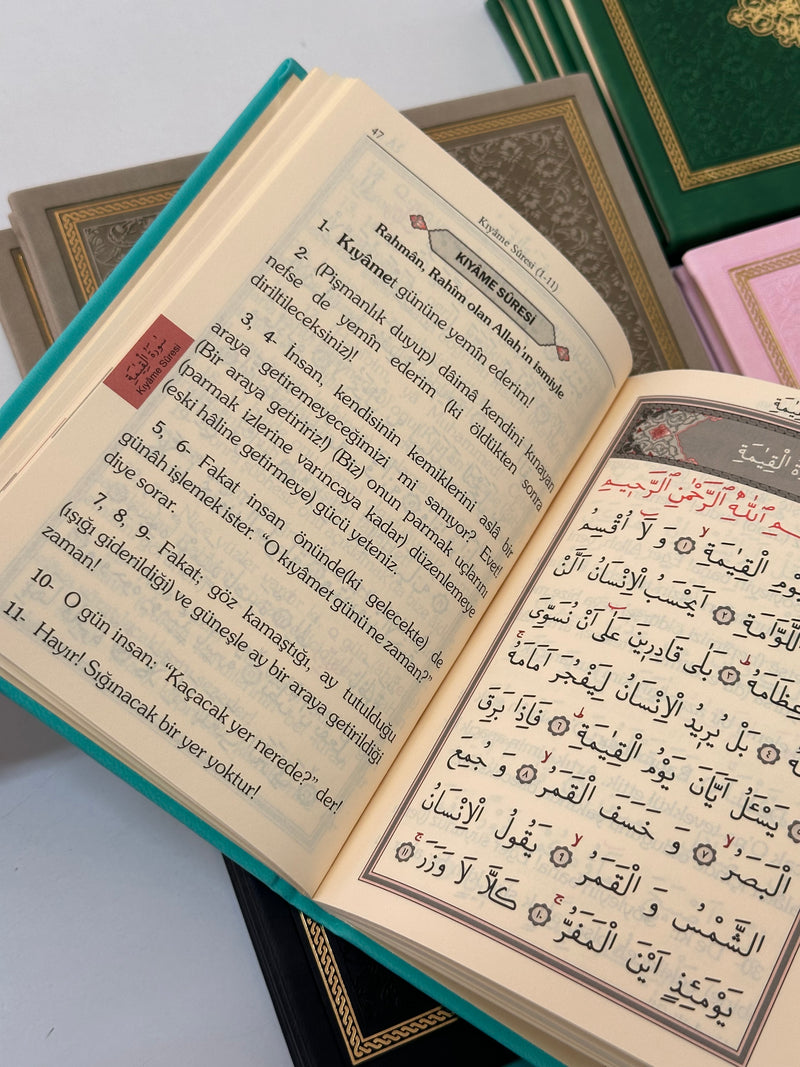 47
Kıyâme Sûresi (1-11)
KIYÂME SÛRESİ
Rahmân, Rahîm olan Allah'ın ismiyle
1- Kıyâmet gününe yemîn ederim!
2- (Pişmanlık duyup) dâimâ kendini kınayan
nefse de yemîn ederim (ki öldükten sonra
diriltileceksiniz)!
3, 4- İnsan, kendisinin kemiklerini aslâ bir
araya getiremeyeceğimizi mi sanıyor? Evet!
(Bir araya getiririz!) (Biz) onun parmak uçlarını
(parmak izlerine varıncaya kadar) düzenlemeye
(eski hâline getirmeye) gücü yeteniz.
5, 6- Fakat insan önünde(ki gelecekte) de
günâh işlemek ister. "O kıyâmet günü ne zaman?"
diye sorar.
7, 8, 9- Fakat; göz kamaştığı, ay tutulduğu
(ışığı giderildiği) ve güneşle ay bir araya getirildiği
zaman!
10- O gün insan: "Kaçacak yer nerede?" der!
11- Hayır! Sığınacak bir yer yoktur!
سُورَةُ الْقِيٰمَةِ
Kıyâme Sûresi
الْقِيٰمَةِ
اللّٰهِ الرَّحْمٰنِ الرَّحِيمِ
الْقِيٰمَةِ ﴿١﴾ وَ لَٓا اُقْسِمُ
اللَّوَّامَةِ ﴿٢﴾ اَيَحْسَبُ الْاِنْسَانُ اَلَّنْ
عِظَامَهُ ﴿٣﴾ بَلٰى قَادِرِينَ عَلٰٓى اَنْ نُسَوِّىَ
﴿٤﴾ بَلْ يُرِيدُ الْاِنْسَانُ لِيَفْجُرَ اَمَامَهُ
يَسْـَٔلُ اَيَّانَ يَوْمُ الْقِيٰمَةِ ﴿٦﴾ فَاِذَا بَرِقَ
الْبَصَرُ ﴿٧﴾ وَ خَسَفَ الْقَمَرُ ﴿٨﴾ وَ جُمِعَ
الشَّمْسُ وَ الْقَمَرُ ﴿٩﴾ يَقُولُ الْاِنْسَانُ
يَوْمَئِذٍ اَيْنَ الْمَفَرُّ ﴿١٠﴾ كَلَّا لَا وَزَرَ ﴿١١﴾